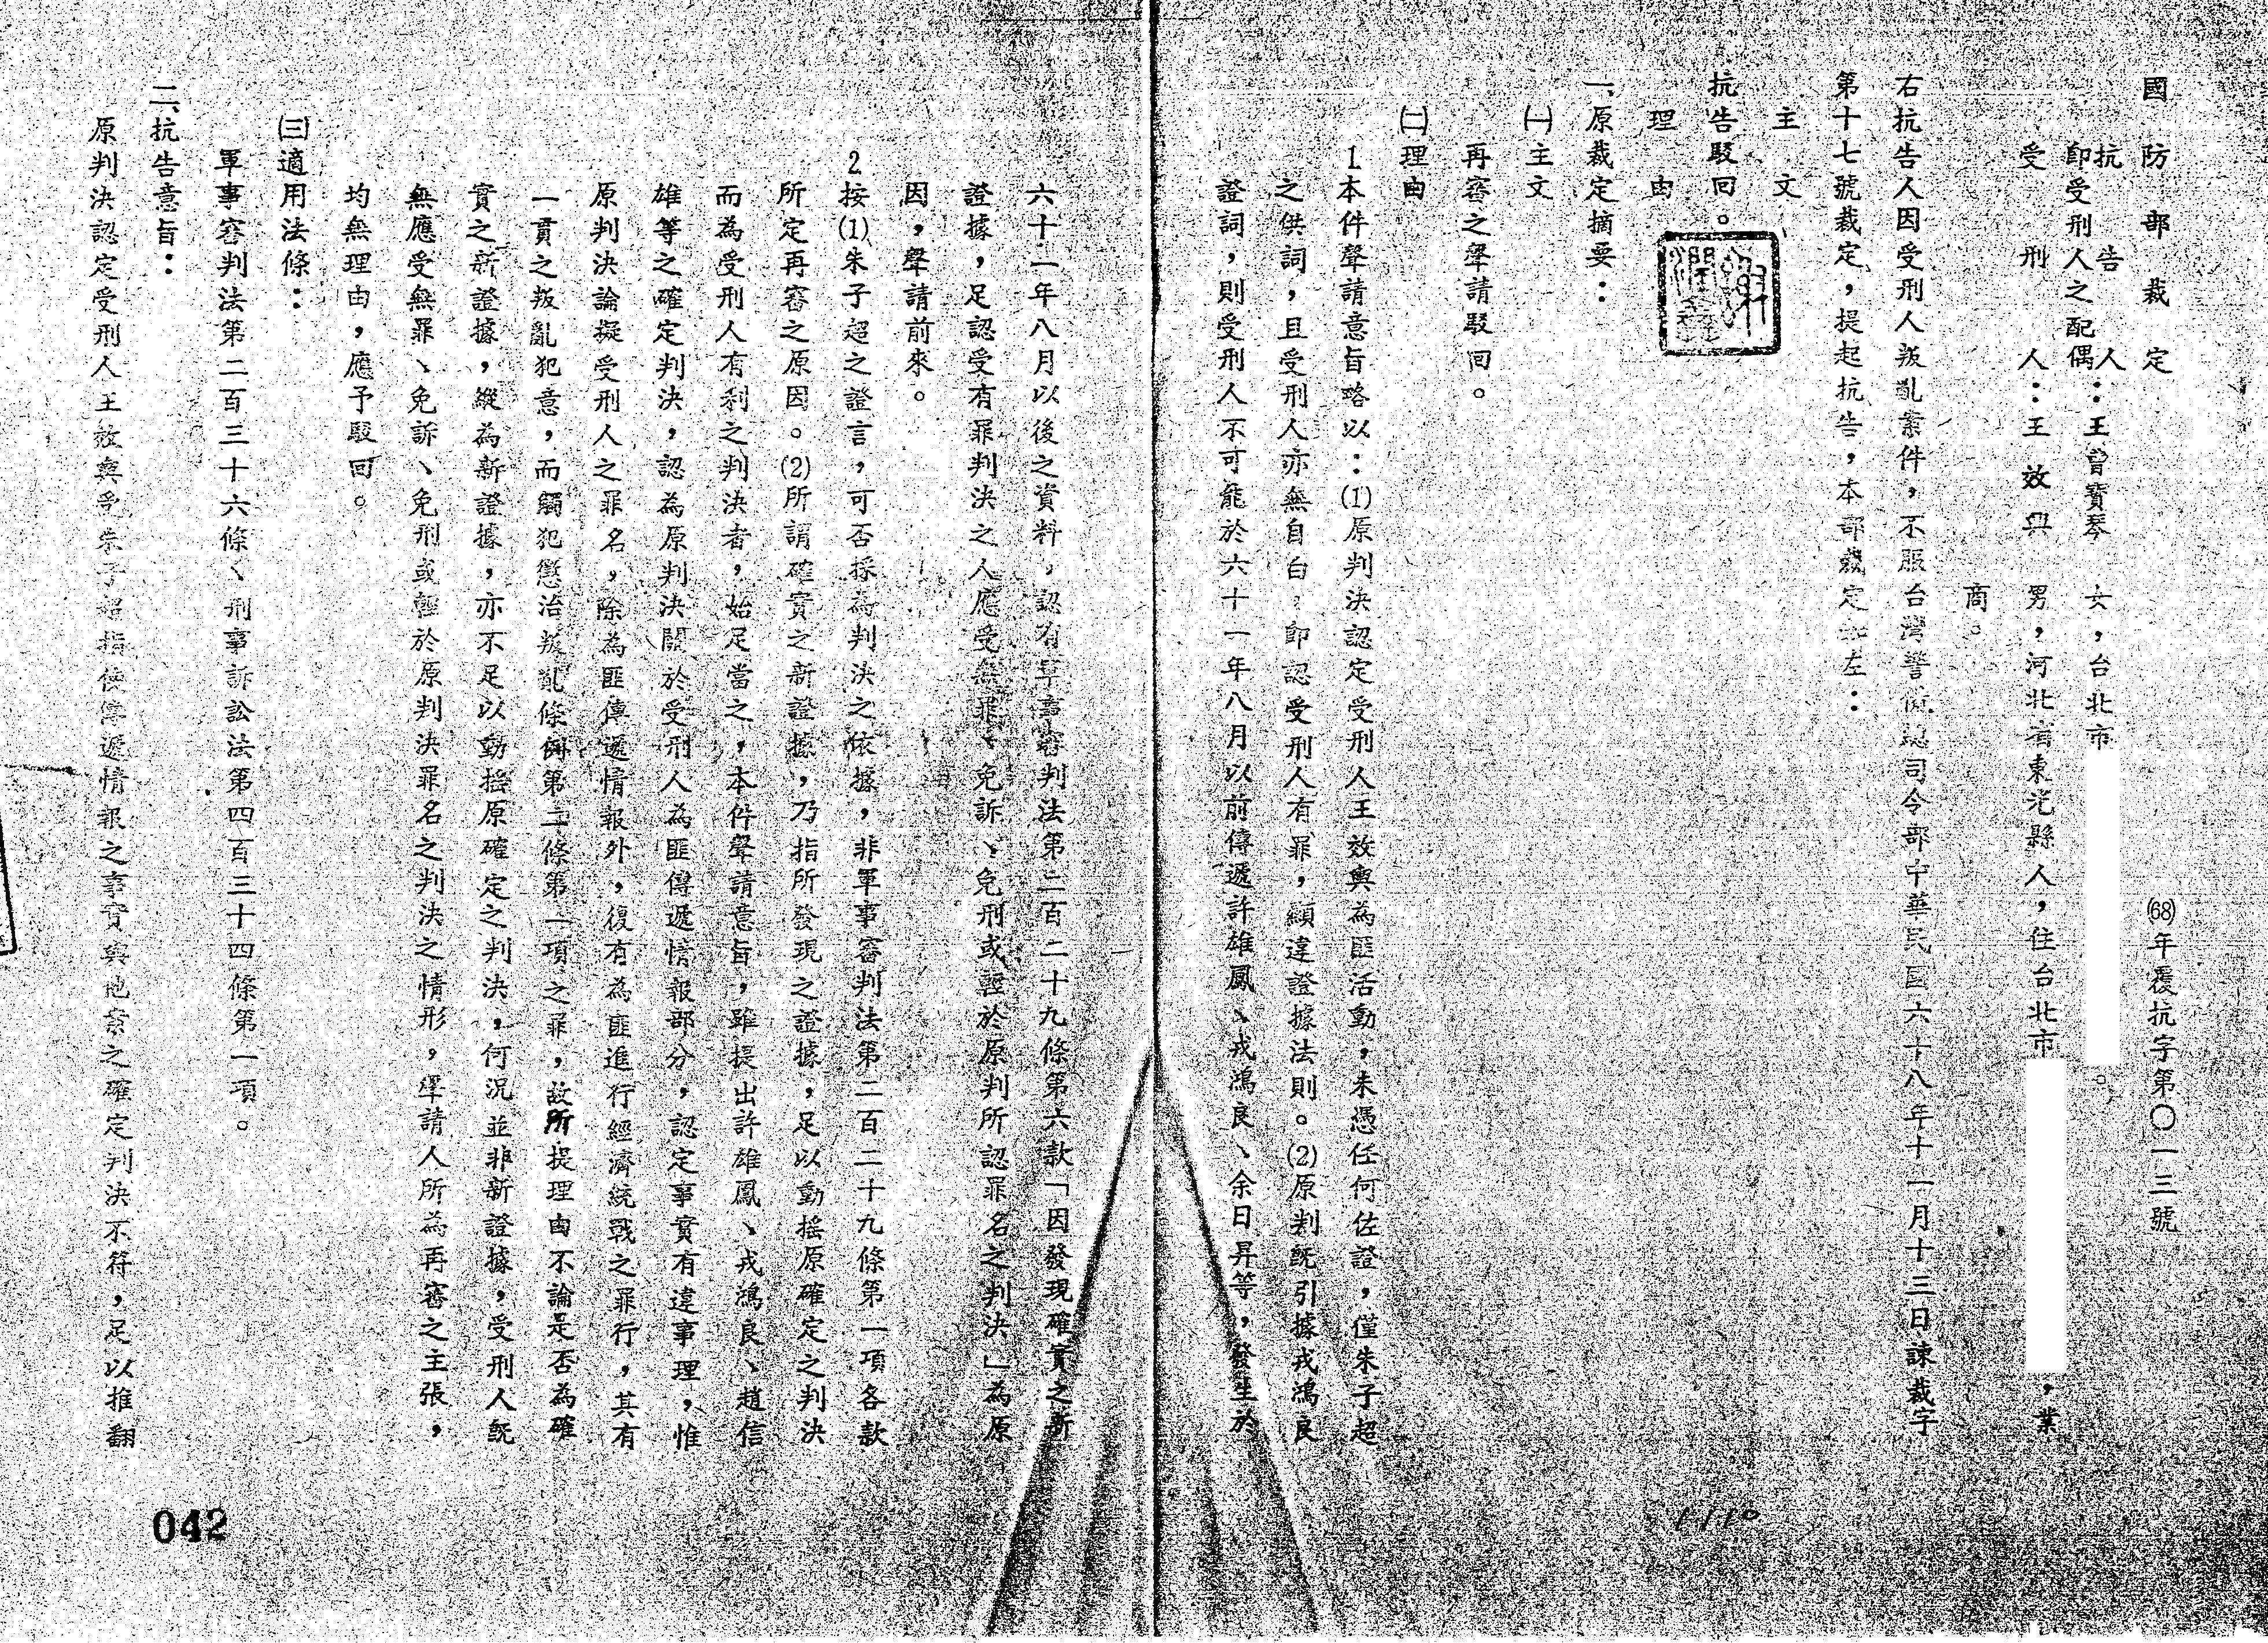 國防部裁定
(68)年覆抗字第〇一三號
抗告人：王曾寶琴 女，台北市 。
即受刑人之配偶
受刑人：王效輿 男，河北省東光縣人，住台北市 ，業
商。
右抗告人因受刑人叛亂案件，不服台灣警備總司令部中華民國六十八年十一月十三日諫裁字
第十七號裁定，提起抗告，本部裁定如左：
主文
抗告駁回。
理由
一、原裁定摘要：
㈠主文
再審之聲請駁回。
㈡理由
1.本件聲請意旨略以：(1)原判決認定受刑人王效輿為匪活動，未憑任何佐證，僅朱子超
之供詞，且受刑人亦無自白，即認受刑人有罪，顯違證據法則。(2)原判既引據戎鴻良
證詞，則受刑人不可能於六十一年八月以前傳遞許雄鳳、戎鴻良、余日昇等，發生於
六十一年八月以後之資料，認有軍事審判法第二百二十九條第六款「因發現確實之新
證據，足認受有罪判決之人應受無罪、免訴、免刑或輕於原判所認罪名之判決」為原
因，聲請前來。
2.按(1)朱子超之證言，可否採為判決之依據，非軍事審判法第二百二十九條第一項各款
所定再審之原因。(2)所謂確實之新證據，乃指所發現之證據，足以動搖原確定之判決
而為受刑人有利之判決者，始足當之，本件聲請意旨，雖提出許雄鳳、戎鴻良、趙信
雄等之確定判決，認為原判決關於受刑人為匪傳遞情報部分，認定事實有違事理，惟
原判決論擬受刑人之罪名，除為匪傳遞情報外，復有為匪進行經濟統戰之罪行，其有
一貫之叛亂犯意，而觸犯懲治叛亂條例第二條第一項之罪，故所提理由不論是否為確
實之新證據，縱為新證據，亦不足以動搖原確定之判決，何況並非新證據，受刑人既
無應受無罪、免訴、免刑或輕於原判決罪名之判決之情形，聲請人所為再審之主張，
均無理由，應予駁回。
㈢適用法條：
軍事審判法第二百三十六條、刑事訴訟法第四百三十四條第一項。
二、抗告意旨：
原判決認定受刑人王效輿受朱子超指使傳遞情報之事實與他案之確定判決不符，足以推翻
042